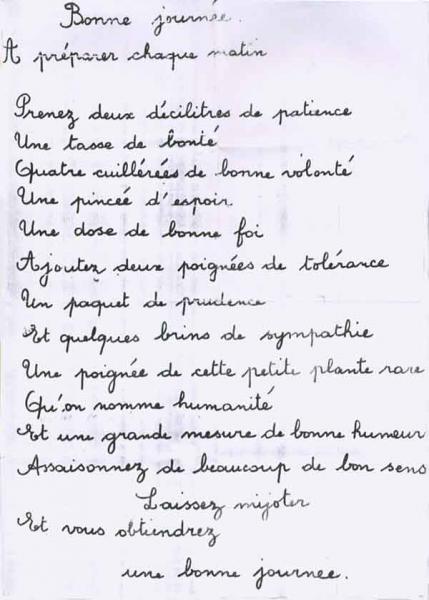 Bonne journée.
A préparer chaque matin
Prenez deux décilitres de patience
Une tasse de bonté
Quatre cuillérées de bonne volonté
Une pinceé d'espoir.
Une dose de bonne foi
Ajoutez deux poignées de tolérance
Un paquet de prudence
Et quelques brins de sympathie
Une poignée de cette petite plante rare
Qu'on nomme humanité
Et une grande mesure de bonne humeur
Assaisonnez de beaucoup de bon sens
Laissez mijoter
Et vous obtiendrez
une bonne journee.